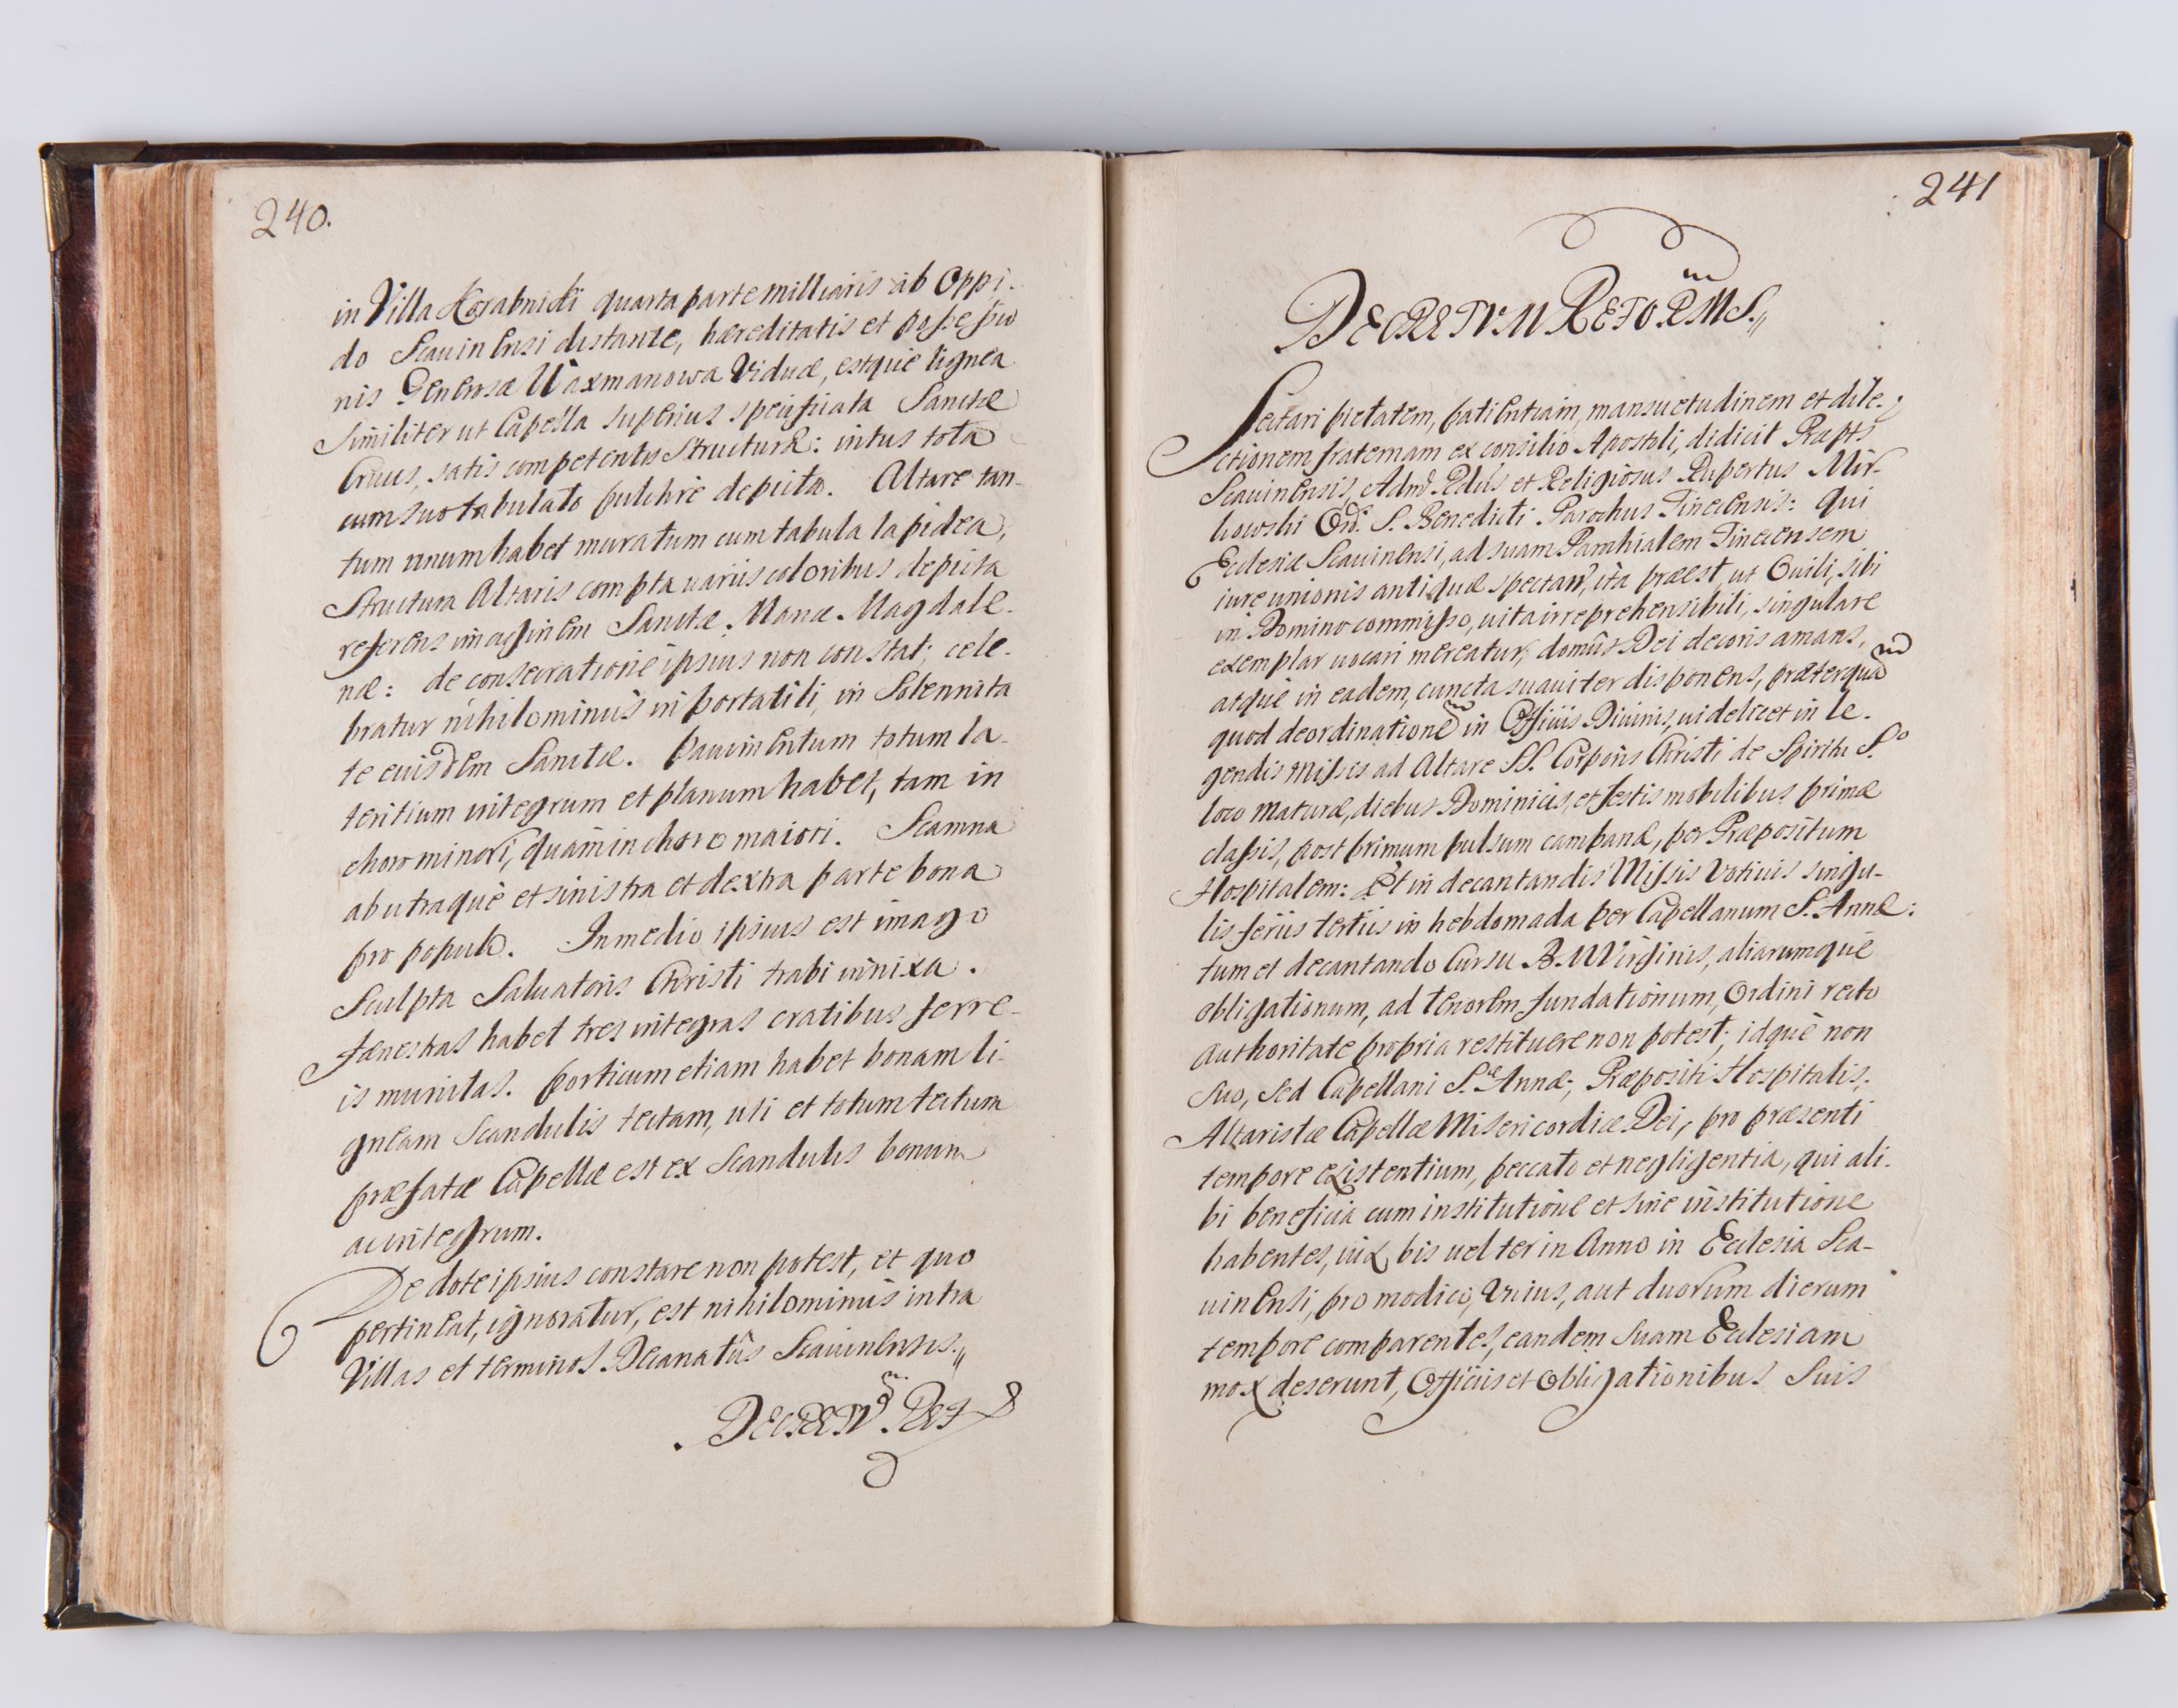 240.
in Villa Korabniki quarta parte milliaris ab Oppi-
do Scauinensi distante, hæreditatis et possessio
nis Generosæ Waxmanowa Viduæ, estque lignea
similiter ut Capella superius specificata Sanctæ
Crucis, satis competentis structuræ: intus tota
cum suo tabulato pulchrè depicta. Altare tan-
tum unum habet muratum cum tabula lapidea,
Structura Altaris compta uariis coloribus depicta
referens imaginem Sanctæ Mariæ Magdale-
næ: de consecratione ipsius non constat; cele-
bratur nihilominus in portatili, in Solennita
te eiusdem Sanctæ. Pauimentum totum la-
teritium integrum et planum habet, tam in
choro minori, quàm in choro maiori. Scamna
ab utraque et sinistra et dextra parte bona
pro populo. In medio ipsius est imago
Sculpta Saluatoris Christi trabi innixa.
Fænestras habet tres integras cratibus ferre-
is munitas. Porticum etiam habet bonam li-
gneam Scandulis tectam, uti et totum tectum
præfatæ Capellæ est ex Scandulis bonum
ac integrum.
De dote ipsius constare non potest, et quo
pertineat, ignoratur, est nihilominus intra
Villas et terminos Decanatûs Scauinensis.
DECRETV Ref
241
DECRETVM REFORMS.
Sectari pietatem, patientiam, mansuetudinem et dile-
ctionem fraternam ex consilio Apostoli, didicit Præpts
Scauinensis, Admd Rdus et Religiosus Rupertus Mir-
howski Ord. S. Benedicti Parochus Tinecensis: qui
Ecclesiæ Scauinensi, ad suam Parochialem Tinecensem
iure unionis antiquæ spectan, ita præest, ut Ouili, sibi
in Domino commisso, uita irreprehensibili, singulare
exemplar uocari mereatur, domûs Dei decoris amans,
atque in eadem, cuncta suauiter disponens, præterquam
quod deordinationem in Officiis Diuinis, uidelicet in le-
gendis Missis ad Altare SS. Corporis Christi de Spiritu S.o
loco maturæ, diebus Dominicis, et festis mobilibus primæ
classis, post primum pulsum campanæ, per Præpositum
Hospitalem: et in decantandis Missis Votiuis singu-
lis feriis tertiis in hebdomada per Capellanum S. Annæ:
tum et decantando Cursu B. M Virginis, aliarumque
obligationum, ad tenorem fundationum, Ordini recto
authoritate propria restituere non potest; idque non
suo, sed Capellani S.æ Annæ, Præpositi Hospitalis,
Altaristæ Capellæ Misericordiæ Dei, pro præsenti
tempore existentium, peccato et negligentia, qui ali-
bi beneficia cum institutione et sine institutione
habentes, uix bis uel ter in Anno in Ecclesia Sca-
uinensi, pro modico, unius, aut duorum dierum
tempore comparentes, eandem suam Ecclesiam
mox deserunt, Officiis et Obligationibus suis